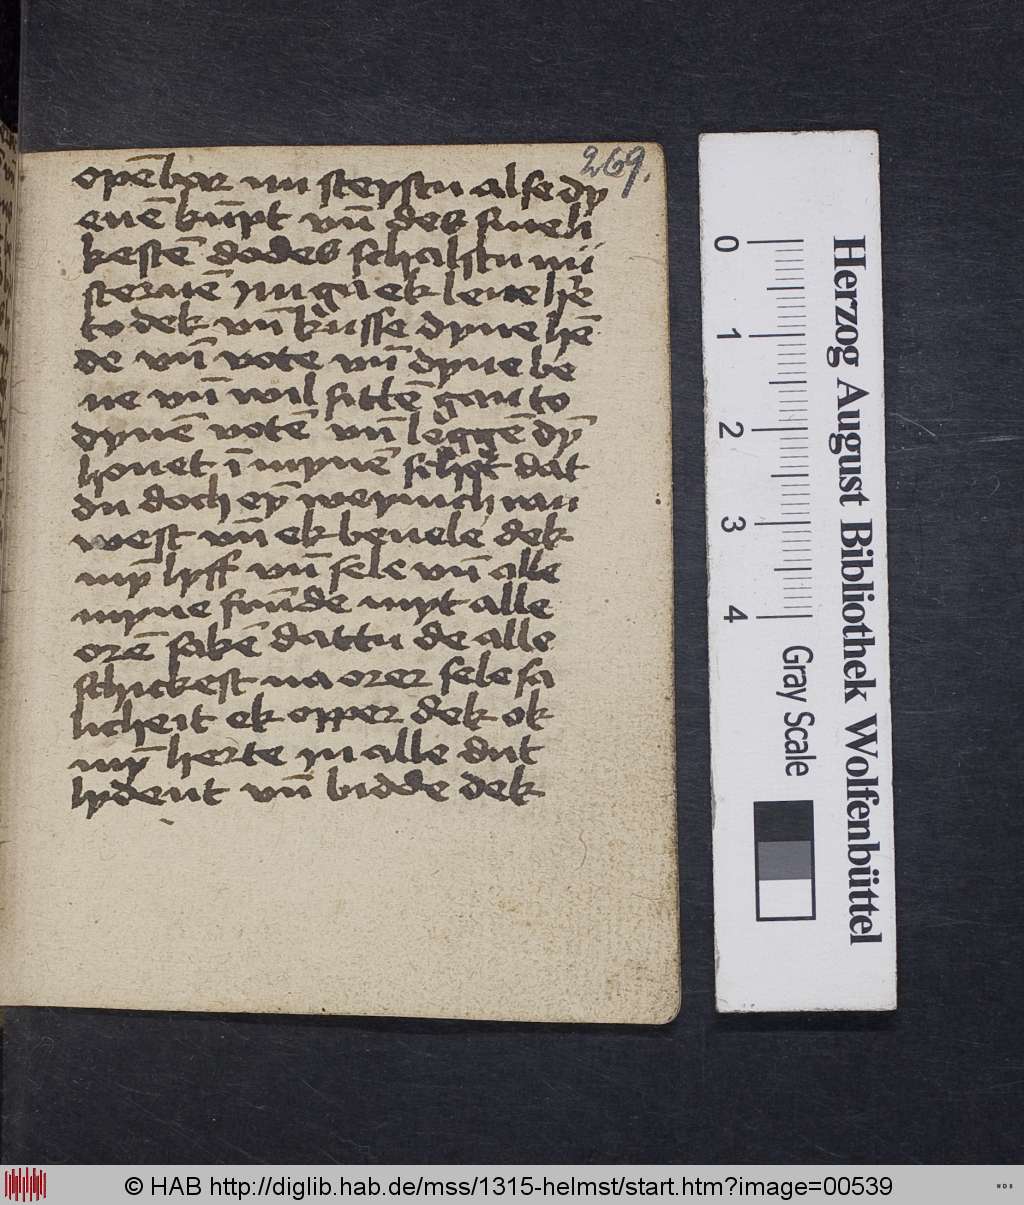 269.
opēbar nu steystu alse dy
euē kūpt vn̄ des smeli
kesten̄ dodes schalstu nu
steruē ek leue hr̄e
to dek vn̄ kusse dyne hē
de vn̄ vote vn̄ dyne be
ne vn̄ wil sittē gan to
dynē votē vn̄ leggē dȳ
houet ī mynē schot dat
du doch eȳ weynich rau
west vn̄ ek beuele dek
mȳ lyff vn̄ sele vn̄ alle
myne frūde myt alle
orē sakē dattu de alle
schickest na orer sele sa
licheit ek opper dek ok
mȳ herte yn alle dut
lydent vn̄ bidde dek
0 1 2 3 4
Herzog August Bibliothek Wolfenbüttel
Gray Scale
© HAB http://diglib.hab.de/mss/1315-helmst/start.htm?image=00539